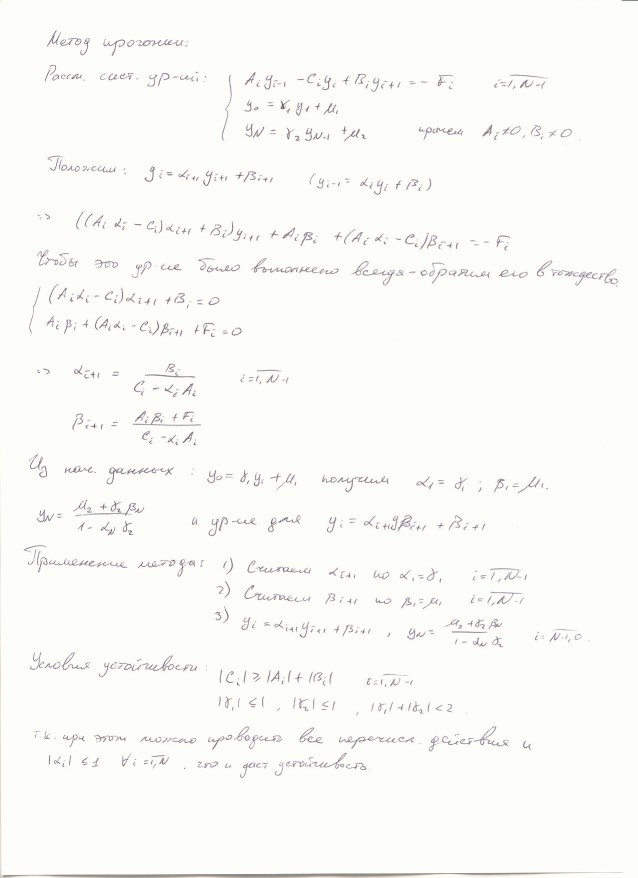 Метод прогонки:
Рассм. сист. ур-ий: { A_i y_{i-1} - C_i y_i + B_i y_{i+1} = - F_i   i = \overline{1, N-1}
y_0 = γ_1 y_1 + μ_1
y_N = γ_2 y_{N-1} + μ_2   причем A_i ≠ 0, B_i ≠ 0.
Положим: y_i = α_{i+1} y_{i+1} + β_{i+1}   (y_{i-1} = α_i y_i + β_i)
=> ((A_i α_i - C_i) α_{i+1} + B_i) y_{i+1} + A_i β_i + (A_i α_i - C_i) β_{i+1} = - F_i
Чтобы это ур-ие было выполнено всегда - обратим его в тождество.
{ (A_i α_i - C_i) α_{i+1} + B_i = 0
A_i β_i + (A_i α_i - C_i) β_{i+1} + F_i = 0
=> α_{i+1} = \frac{B_i}{C_i - α_i A_i}   i = \overline{1, N-1}
β_{i+1} = \frac{A_i β_i + F_i}{C_i - α_i A_i}
Из нач. данных: y_0 = γ_1 y_1 + μ_1 получим α_1 = γ_1 ; β_1 = μ_1.
y_N = \frac{μ_2 + γ_2 β_N}{1 - α_N γ_2}   и ур-ие для y_i = α_{i+1} y_{i+1} + β_{i+1}
Применение метода: 1) Считаем α_{i+1} по α_1 = γ_1   i = \overline{1, N-1}
2) Считаем β_{i+1} по β_1 = μ_1   i = \overline{1, N-1}
3) y_i = α_{i+1} y_{i+1} + β_{i+1} , y_N = \frac{μ_2 + γ_2 β_N}{1 - α_N γ_2}   i = \overline{N-1, 0}.
Условия устойчивости: |C_i| ≥ |A_i| + |B_i|   i = \overline{1, N-1}
|γ_1| ≤ 1 , |γ_2| ≤ 1 , |γ_1| + |γ_2| < 2
т.к. при этом можно проводить все перечисл. действия и
|α_i| ≤ 1   ∀ i = \overline{1, N} , что и даст устойчивость.